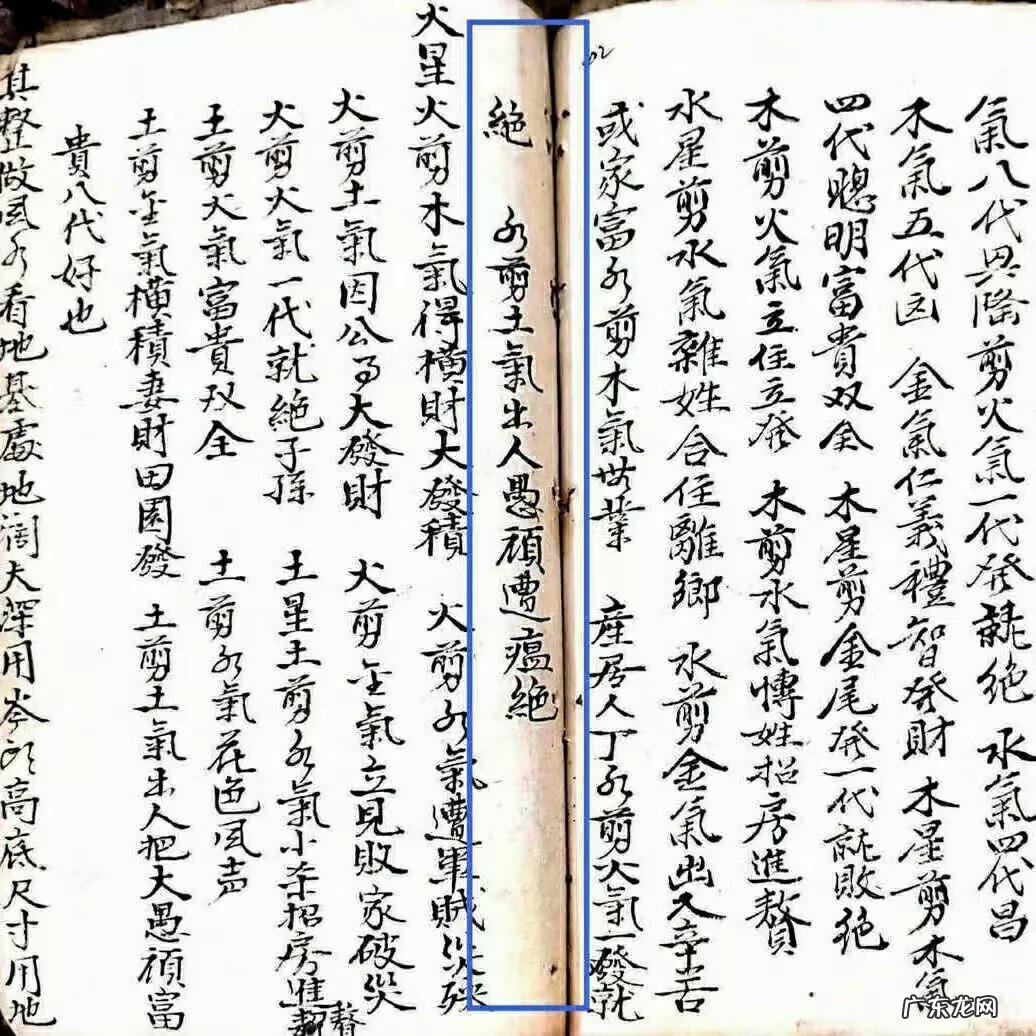 氣八代異隆剪火氣一代發就絕 水氣四代昌
木氣五代凶 金氣仁義禮智發財 木星剪木氣
四代聰明富貴双全 木星剪金尾發一代就敗绝
木剪火氣立住立發 木剪水氣愽姓招房進贅
水星剪水氣雜姓合住離鄉 水剪金氣出人辛苦
或家富水剪木氣世業 産居人丁水剪火氣一發就
絕 水剪土氣出人愚頑遭瘟絕
火星火剪木氣得橫財大發積 火剪水氣遭軍賊災
火剪土氣因公大發財 火剪金氣立見敗家破災
火剪火氣一代就絕子孫 土星土剪水氣小杀招房進贅
土剪火氣富貴双全 土剪水氣花色风声
土剪金氣橫積妻財田園發 土剪土氣出人把大愚頑富
貴八代好也
其整做风水看地基處地濶大深用高底尺寸用地
02
广东龙网